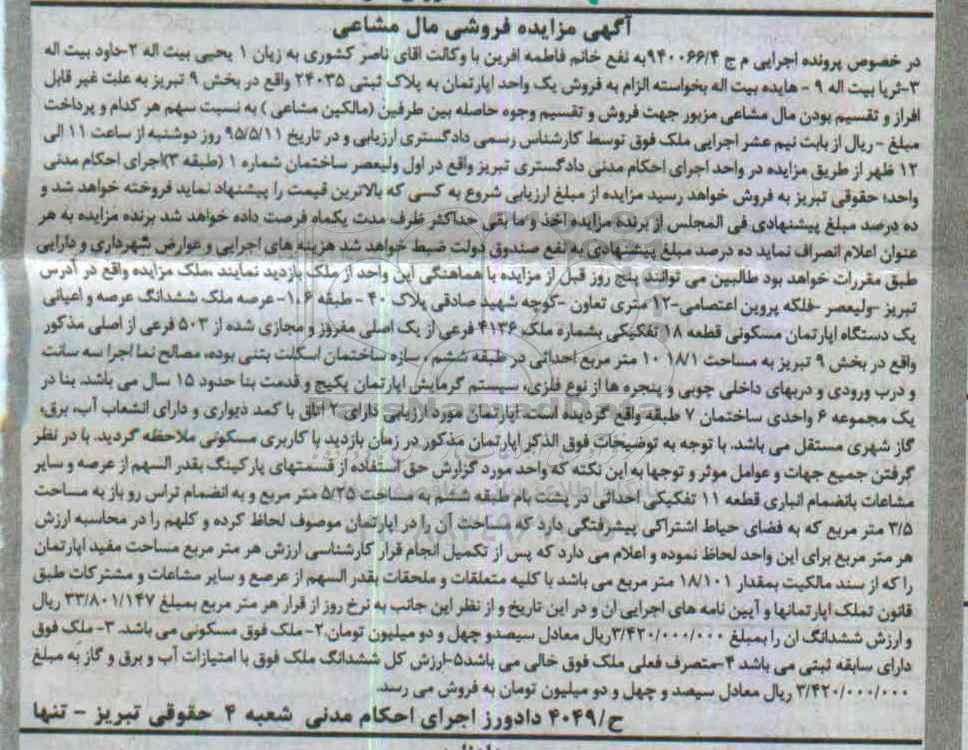 آگهی مزایده فروشی مال مشاعی
در خصوص پرونده اجرایی م ج ۹۴۰۰۶۶/۴ به نفع خانم فاطمه افرین با وکالت اقای ناصر کشوری به زیان ۱ یحیی بیت اله ۲-داود بیت اله
۳-ثریا بیت اله ۹ - هایده بیت اله بخواسته الزام به فروش یک واحد اپارتمان به پلاک ثبتی ۲۴۰۳۵ واقع در بخش ۹ تبریز به علت غیر قابل
افراز و تقسیم بودن مال مشاعی مزبور جهت فروش و تقسیم وجوه حاصله بین طرفین (مالکین مشاعی ) به نسبت سهم هر کدام و پرداخت
مبلغ - ریال از بابت نیم عشر اجرایی ملک فوق توسط کارشناس رسمی دادگستری ارزیابی و در تاریخ ۹۵/۵/۱۱ روز دوشنبه از ساعت ۱۱ الی
۱۲ ظهر از طریق مزایده در واحد اجرای احکام مدنی دادگستری تبریز واقع در اول ولیعصر ساختمان شماره ۱ (طبقه ۳)اجرای احکام مدنی
واحد؛ حقوقی تبریز به فروش خواهد رسید مزایده از مبلغ ارزیابی شروع به کسی که بالاترین قیمت را پیشنهاد نماید فروخته خواهد شد و
ده درصد مبلغ پیشنهادی فی المجلس از برنده مزایده اخذ و ما بقی حداکثر ظرف مدت یکماه فرصت داده خواهد شد برنده مزایده به هر
عنوان اعلام انصراف نماید ده درصد مبلغ پیشنهادی به نفع صندوق دولت ضبط خواهد شد هزینه های اجرایی و عوارض شهرداری و دارایی
طبق مقررات خواهد بود طالبین می توانند پنج روز قبل از مزایده با هماهنگی این واحد از ملک بازدید نمایند ،ملک مزایده واقع در آدرس
تبریز -ولیعصر -فلکه پروین اعتصامی-۱۲ متری تعاون -کوچه شهید صادقی پلاک ۴۰ - طبقه ۱.۶- عرصه ملک ششدانگ عرصه و اعیانی
یک دستگاه اپارتمان مسکونی قطعه ۱۸ تفکیکی بشماره ملک ۴۱۳۶ فرعی از یک اصلی مفروز و مجازی شده از ۵۰۳ فرعی از اصلی مذکور
واقع در بخش ۹ تبریز به مساحت ۱۸/۱ ۱۰ متر مربع احداثی در طبقه ششم ، سازه ساختمان اسکلت بتنی بوده، مصالح نما اجرا سه سانت
و درب ورودی و دربهای داخلی چوبی و پنجره ها از نوع فلزی، سیستم گرمایش اپارتمان پکیج و قدمت بنا حدود ۱۵ سال می باشد. بنا در
یک مجموعه ۶ واحدی ساختمان ۷ طبقه واقع گردیده است. اپارتمان مورد ارزیابی دارای ۲ اتاق با کمد دیواری و دارای انشعاب آب، برق،
گاز شهری مستقل می باشد. با توجه به توضیحات فوق الذکر اپارتمان مذکور در زمان بازدید با کاربری مسکونی ملاحظه گردید. با در نظر
گرفتن جمیع جهات و عوامل موثر و توجها به این نکته که واحد مورد گزارش حق استفاده از قسمتهای پارکینگ بقدر السهم از عرصه و سایر
مشاعات بانضمام انباری قطعه ۱۱ تفکیکی احداثی در پشت بام طبقه ششم به مساحت ۵/۲۵ متر مربع و به انضمام تراس رو باز به مساحت
۳/۵ متر مربع که به فضای حیاط اشتراکی پیشرفتگی دارد که مساحت آن را در اپارتمان موصوف لحاظ کرده و کلهم را در محاسبه ارزش
هر متر مربع برای این واحد لحاظ نموده و اعلام می دارد که پس از تکمیل انجام قرار کارشناسی ارزش هر متر مربع مساحت مفید اپارتمان
را که از سند مالکیت بمقدار ۱۸/۱۰۱ متر مربع می باشد با کلیه متعلقات و ملحقات بقدر السهم از عرصع و سایر مشاعات و مشترکات طبق
قانون تملک اپارتمانها و آیین نامه های اجرایی ان و در این تاریخ و از نظر این جانب به نرخ روز از قرار هر متر مربع بمبلغ ۳۳/۸۰۱/۱۴۷ ریال
و ارزش ششدانگ ان را بمبلغ ۳/۴۲۰/۰۰۰/۰۰۰ریال معادل سیصدو چهل و دو میلیون تومان.۲- ملک فوق مسکونی می باشد. ۳- ملک فوق
دارای سابقه ثبتی می باشد ۴-متصرف فعلی ملک فوق خالی می باشد۵-ارزش کل ششدانگ ملک فوق با امتیازات آب و برق و گاز به مبلغ
۳/۴۲۰/۰۰۰/۰۰۰ ریال معادل سیصد و چهل و دو میلیون تومان به فروش می رسد.
ح/۴۰۴۹ دادورز اجرای احکام مدنی شعبه ۴ حقوقی تبریز - تنها